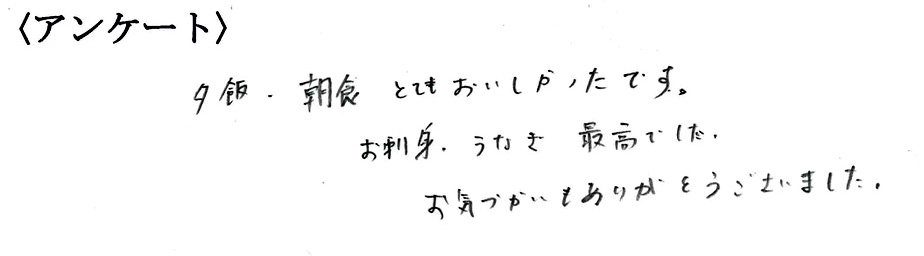 〈アンケート〉
夕飯・朝食 とてもおいしかったです。
お刺身、うなぎ 最高でした。
お気づかいもありがとうございました。